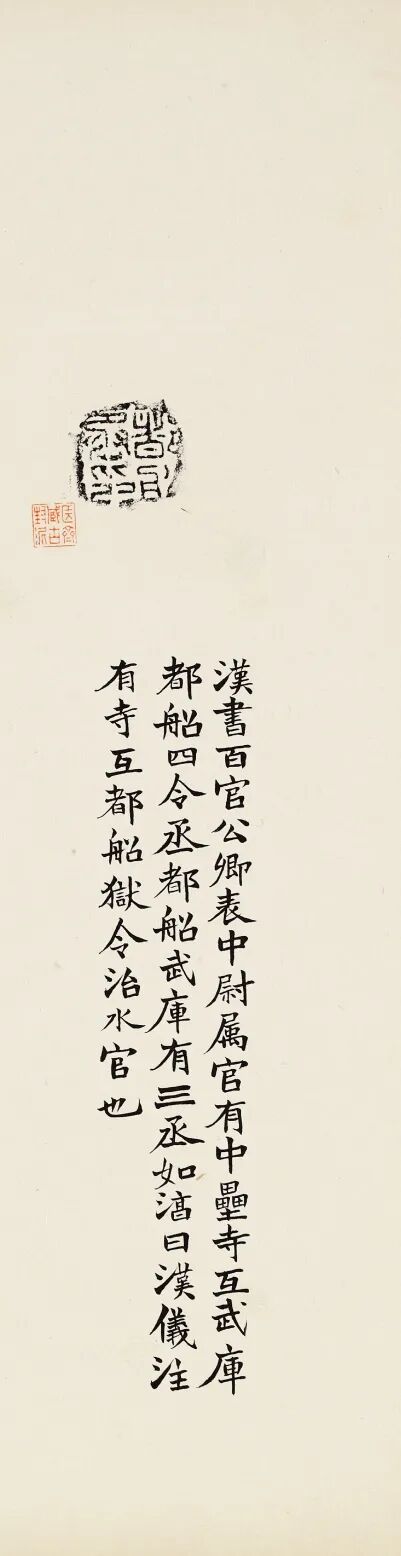 都船
丞印
齋
臧古
封泥
漢書百官公卿表中尉属官有中壘寺互武庫
都船四令丞都船武庫有三丞如湻曰漢儀注
有寺互都船獄令治水官也